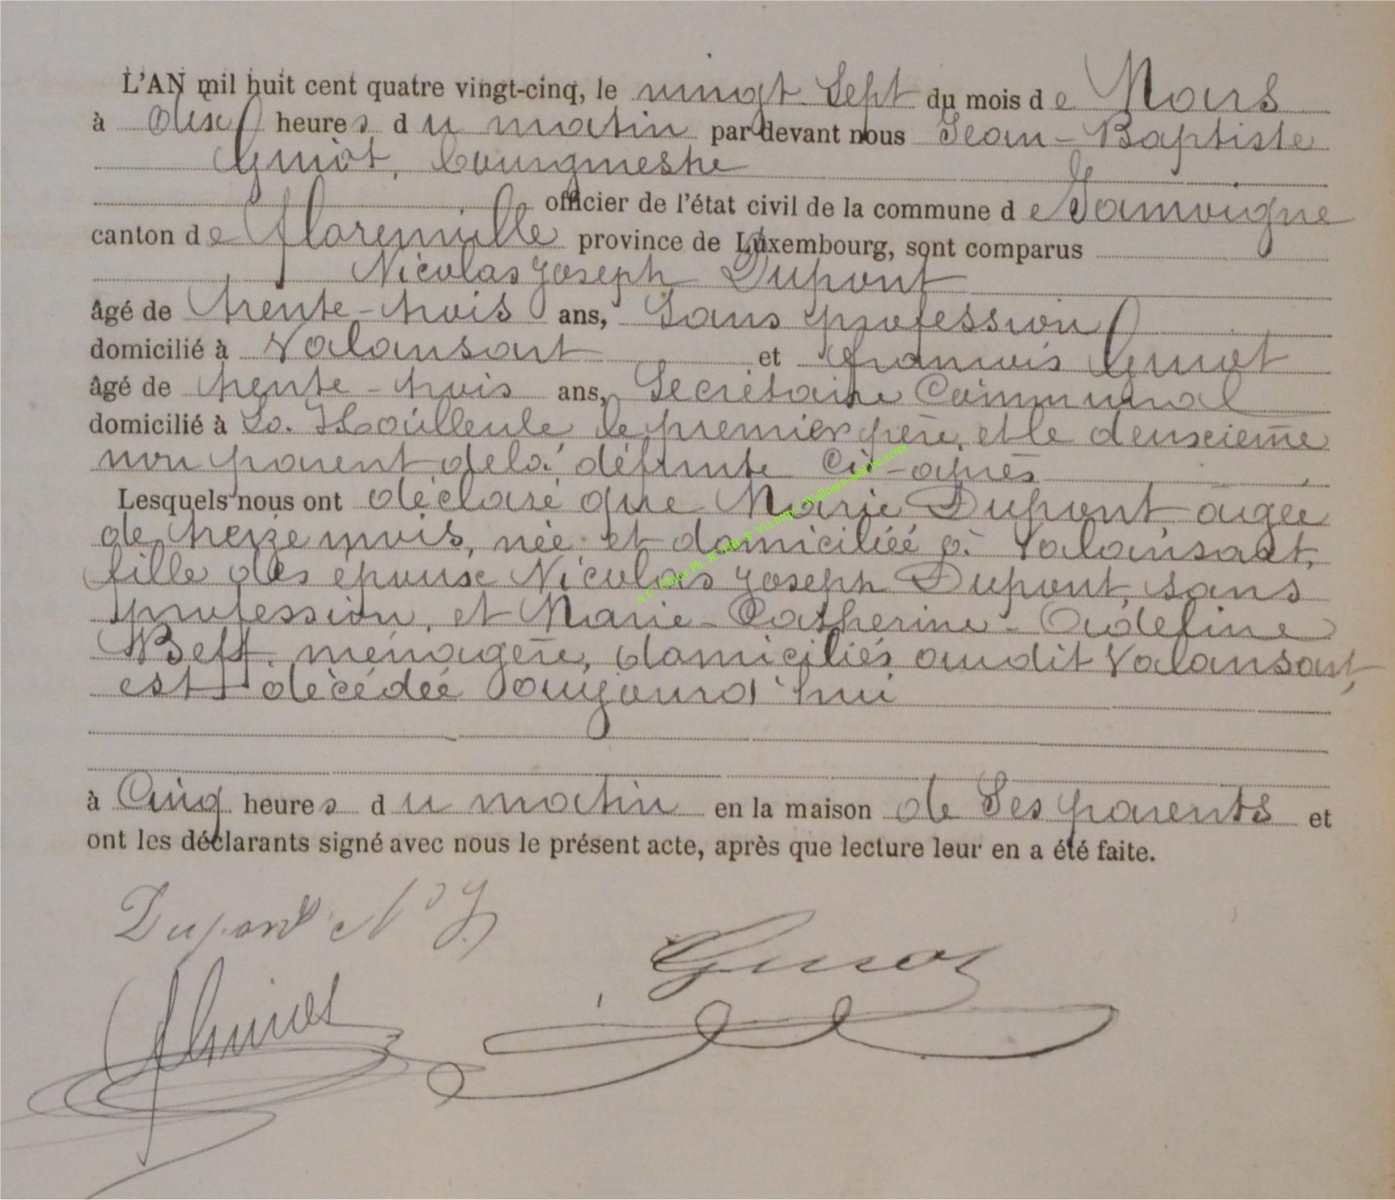 L'AN mil huit cent quatre vingt-cinq, le vingt Sept du mois de Mars
à dix heures du matin par devant nous Jean-Baptiste
Guiot, bourgmestre
officier de l'état civil de la commune de Jamoigne
canton de Florenville province de Luxembourg, sont comparus
Nicolas Joseph Dupont
âgé de trente-trois ans, Sans profession
domicilié à Valansart et François Guiot
âgé de trente-trois ans, Secrétaire Communal
domicilié à La Hailleule le premier père, et le deuxième
non parent de la défunte Ci-après
Lesquels nous ont déclaré que Marie Dupont agée
de treize mois, née et domiciliée à Valansart,
fille des épouse Nicolas Joseph Dupont, sans
profession, et Marie-Catherine-Adeline
Weff, ménagère, domiciliés audit Valansart,
est décédée aujourd'hui
à Cinq heures du matin en la maison de Ses parents et
ont les déclarants signé avec nous le présent acte, après que lecture leur en a été faite.
Dupont N J
Guiot
FGuiot